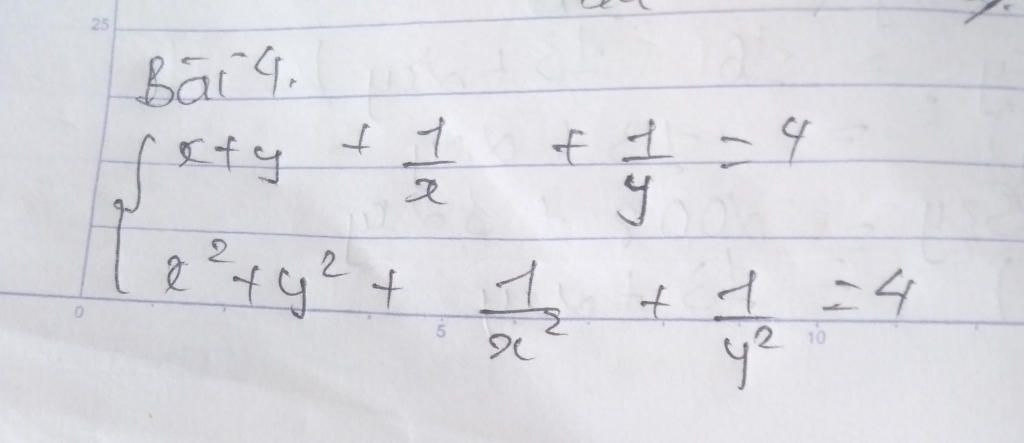 25
Bài 4.
{ x + y + 1/x + 1/y = 4
x² + y² + 1/x² + 1/y² = 4
0 5 10